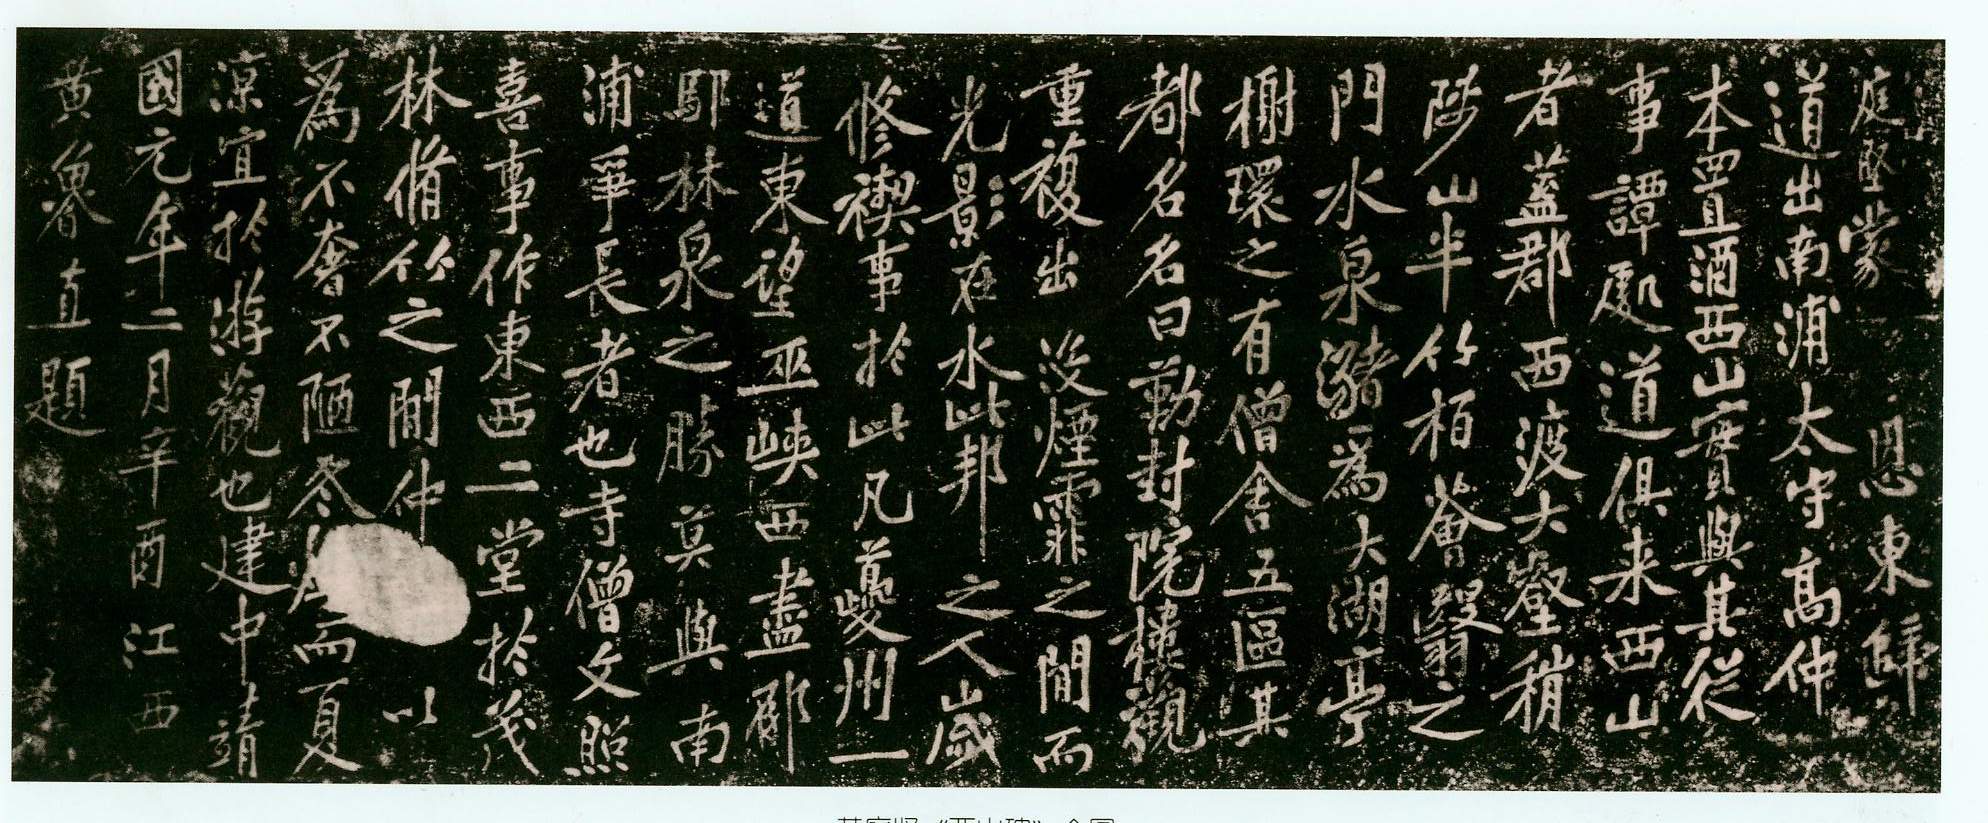 庭堅蒙恩東歸
道出南浦太守高仲
本置酒西山實與其從
事譚處道俱来西山
者蓋郡西渡大壑稍
陟山半竹栢薈翳之
門水泉瀦為大湖亭
榭環之有僧舍五區其
都名名曰勤封院樓觀
重複出没煙霏之間而
光影在水此邦之人歲
修禊事於此凡夔州一
道東望巫峡西盡郁
鄢林泉之勝莫與南
浦爭長者也寺僧文照
喜事作東西二堂於茂
林脩竹之間仲以
為不奢不陋冬而夏
涼宜於游觀也建中靖
國元年二月辛酉江西
黄魯直題